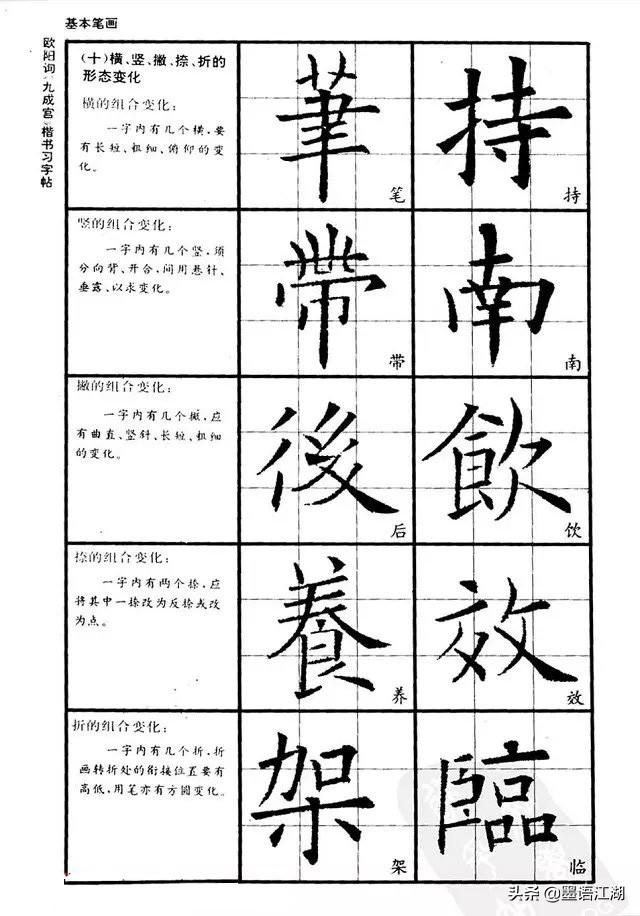 基本笔画
欧阳询《九成宫》楷书习字帖
(十)横、竖、撇、捺、折的
形态变化
横的组合变化:
一字内有几个横,要
有长短、粗细、俯仰的变
化。
筆
笔
持
持
竖的组合变化:
一字内有几个竖,须
分向背、开合,间用悬针、
垂露、以求变化。
帶
带
南
南
撇的组合变化:
一字内有几个撇,应
有曲直、竖针、长短、粗细
的变化。
後
后
飲
饮
捺的组合变化:
一字内有两个捺,应
将其中一捺改为反捺或改
为点。
養
养
效
效
折的组合变化:
一字内有几个折,折
画转折处的衔接位置要有
高低,用笔亦有方圆变化。
架
架
臨
临
头条@墨语江湖